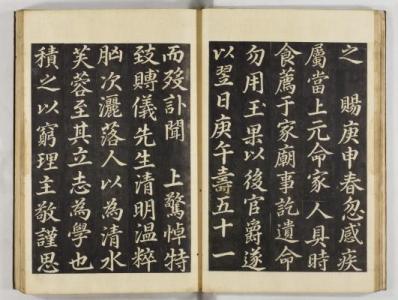 之　賜庚申春忽感疾
屬當上元命家人具時
食薦于家廟事訖遺命
勿用王果以後官爵遂
以翌日庚午壽五十一
而歿訃聞　上驚悼特
致賻儀先生清明温粹
胸次灑落人以為清水
芙蓉至其立志為學也
積之以窮理主敬謹思